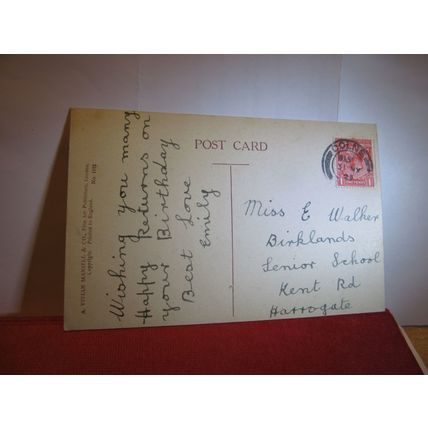 POST CARD
Wishing you many
Happy Returns on
your Birthday
Best Love
Emily
Miss E Walker
Birklands
Senior School
Kent Rd
Harrogate
A. VIVIAN MANSELL & CO., Fine Art Publishers, London.
Copyright. Printed in England.
COLNE